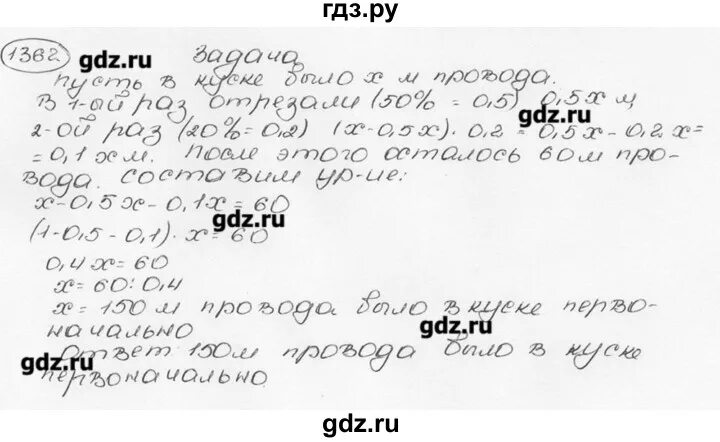 гдз.ру
1362 gdz.ru Задача
Пусть в куске было х м провода.
В 1-ый раз отрезали (50% = 0,5) 0,5х м,
gdz.ru
2-ой раз (20%=0,2) (х-0,5х)·0,2=0,5х-0,2х=
=0,1хм. После этого осталось 60м про-
вода. составим ур-ие:
gdz.ru
х-0,5х-0,1х=60
gdz.ru
(1-0,5-0,1)·х=60
0,4х=60
х=60:0,4
х=150м провода было в куске перво-
начально
gdz.ru
gdz.ru
Ответ 150м провода было в куске
первоначально
gdz.ru
gdz.ru